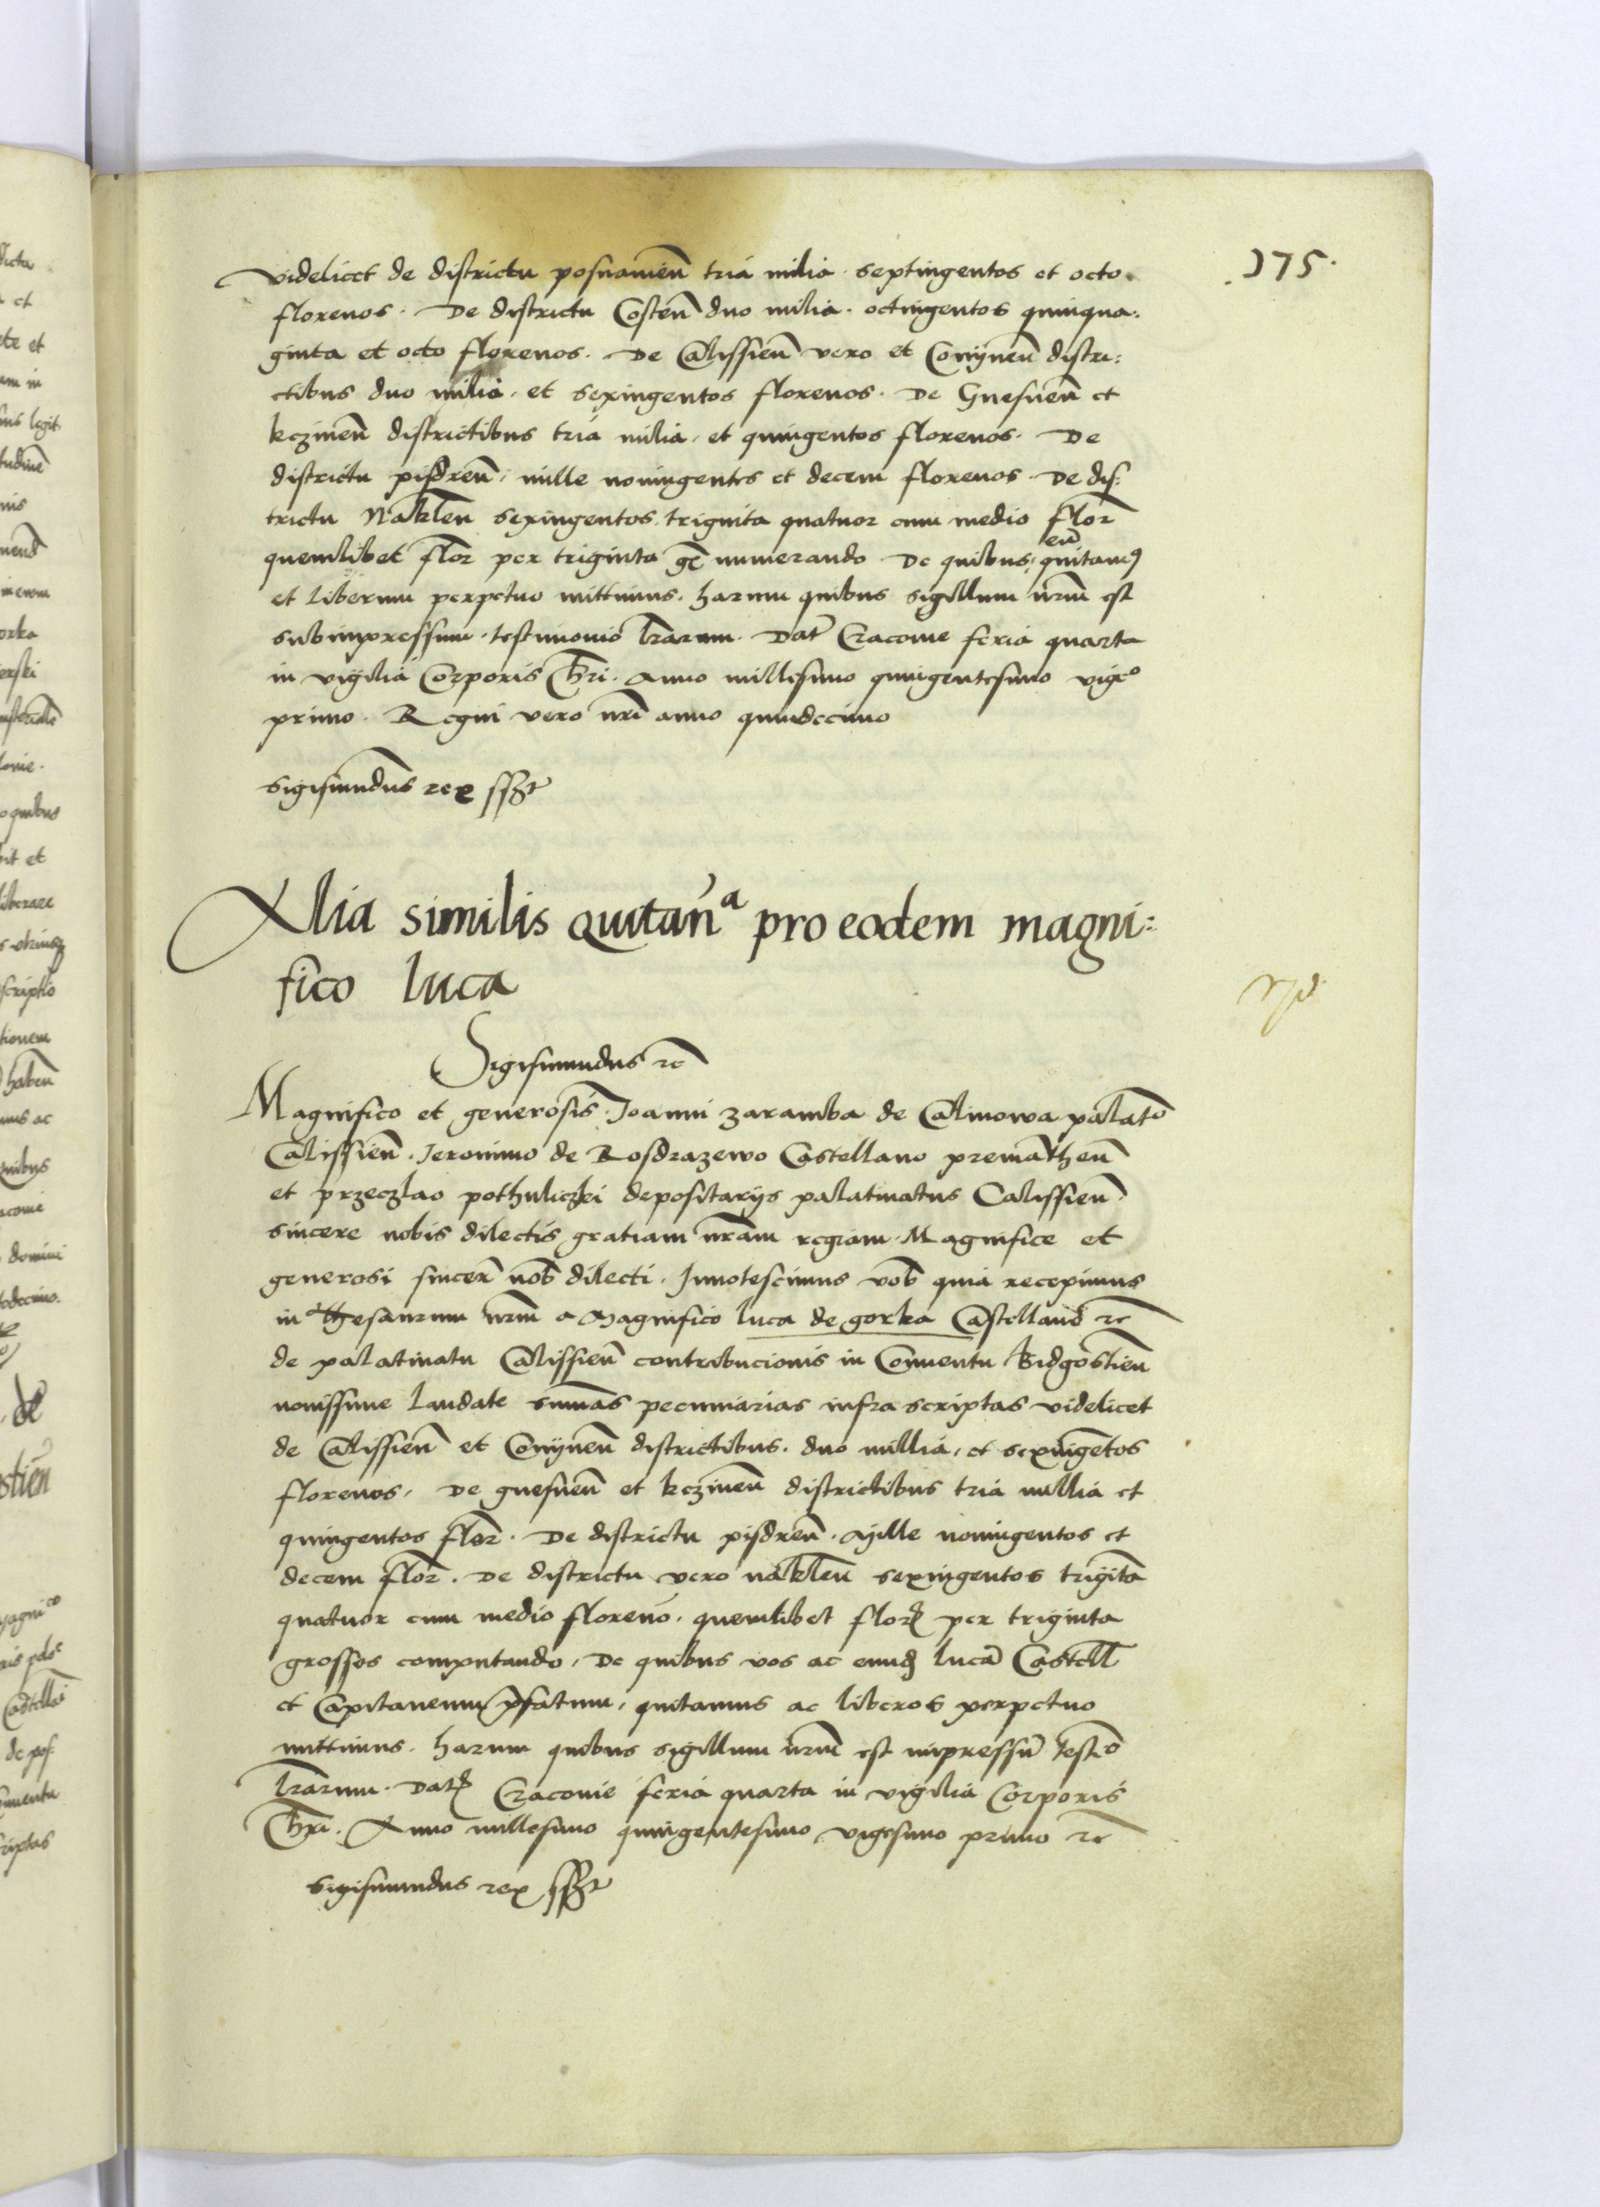 .175.
videlicet de districtu posnanień tria milia septingentos et octo
florenos. De districtu Costeń duo milia. octingentos quinqua:
ginta et octo florenos. De Calissień vero et Conijneń distri:
ctibus duo milia. et sexingentos florenos. De Gnesneń et
kczineń districtibus tria milia. et quingentos florenos. De
districtu pisdreń, mille noningentos et decem florenos. De dis:
trictu Nakleń sexingentos triginta quatuor cum medio flor
quemlibet flor per triginta gr numerando. De quibus eū quitam9
et liberum perpetuo mittimus. harum quibus sigillum nrm est
subimpressum. testimonio lrarum. Dat Cracovie feria quarta
in vigilia Corporis Chri. Anno millesimo quingentesimo vigco
primo. Regni vero nri anno quindecimo
Sigismundus rex sst
Alia similis quitanna pro eodem magni:
fico luca
Sigismundus rc
Magnifico et generosis. Joanni zaramba de Calinowa palato
Calissień. Jeronimo de Rosdrazewo Castellano prematheń
et przeczlao pothuliczki depositarijs palatinatus Calissień.
sincere nobis dilectis gratiam nram regiam. Magnifice et
generosi sincer nob dilecti. Innotescimus vob quia recepimus
in Thesaurum nrm a Magnifico luca de gorka Castellano rc
de palatinatu Calissień contribucionis in Conuentu Bidgostień
nouissime laudate summas pecuniarias infra scriptas videlicet
de Calissień et Conijneń districtibus. duo millia, et sexingentos
florenos, De gnesneń et kczineń districtibus tria millia et
quingentos flor. De districtu pisdreń. Mille noningentos et
decem flor. De districtu vero nakleń sexingentos triginta
quatuor cum medio floreno. quemlibet flor per triginta
grossos computando, De quibus vos ac eundem lucā Castell
et Capitaneum pfatum, quitamus ac liberos perpetuo
mittimus. harum quibus sigillum nrm est impressū testo
lrarum. Dat Cracovie feria quarta in vigilia Corporis
Chri. Anno millesimo quingentesimo vigesimo primo rc
Sigismundus rex sst